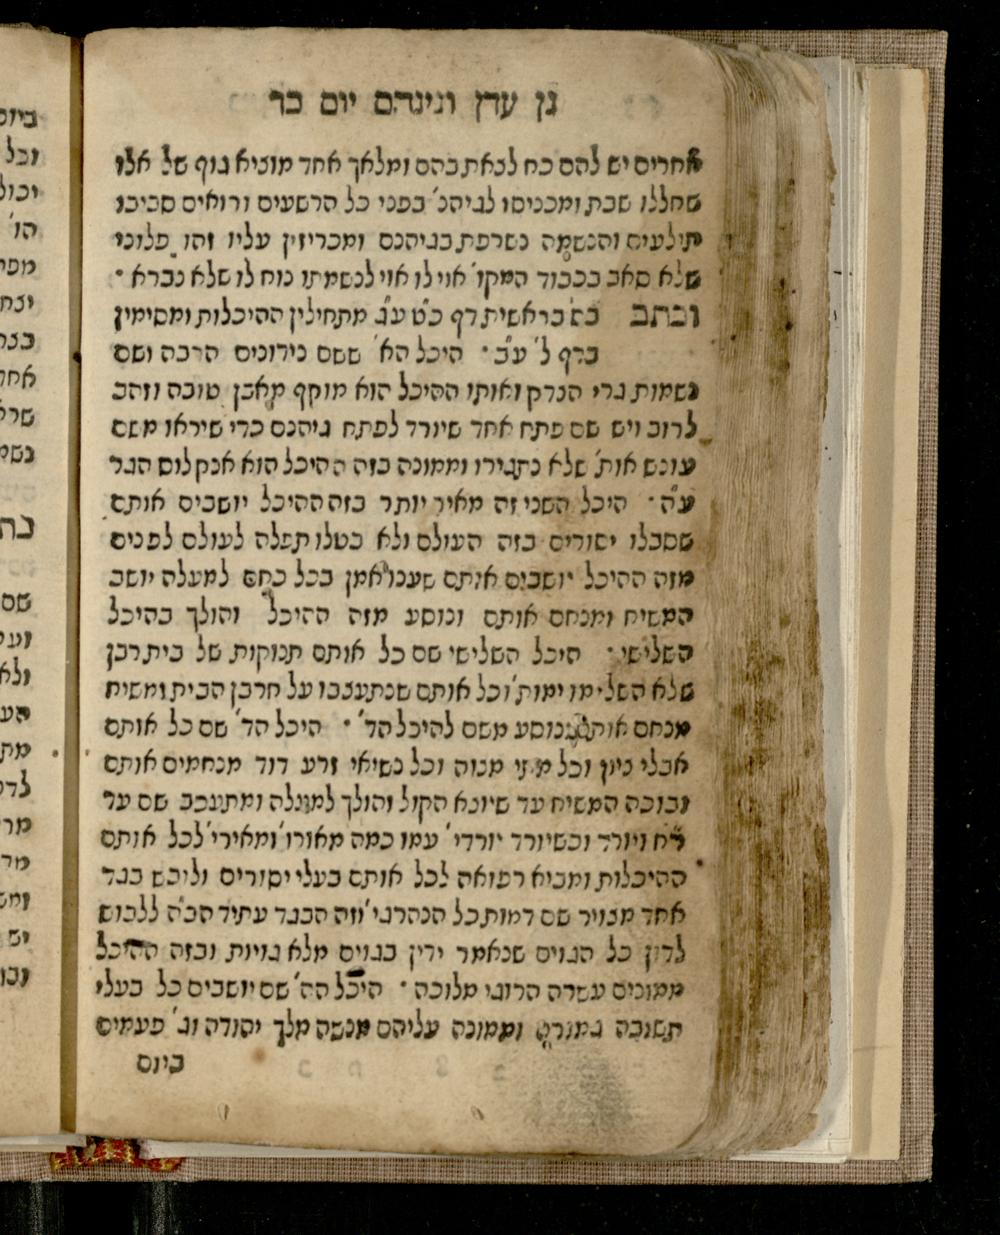 גן עדן וגיהנם יום כד
אחרים יש להם כח לצאת בהם ומלאך אחד מוציא גוף של אלו
שחללו שבת ומכניסו לגיהנ' בפני כל הרשעים ורואים סביבו
תילעים והנשמה נשרפת בגיהנם ומכריזין עליו זהו פלוני
שלא סאב בכבוד המקו' אוי לו אוי לנשמתו נוח לו שלא נברא
וכתב בס' בראשית דף כ"ט ע"ג מתחילין ההיכלות ומסימין
בדף ל' ע"ב היכל הא' ששם נידונים הרבה ושם
נשמות גרי הצדק ואותו ההיכל הוא מוקף מאבן טובה וזהב
לרוב ויש שם פתח אחד שיורד לפתח גיהנם כדי שיראו משם
עונש אות' שלא נתגיירו וממונה בזה ההיכל הוא אנקלוס הגר
ע"ה היכל השני זה מאיר יותר בזה ההיכל יושבים אותם
שסבלו יסורים בזה העולם ולא בטלו תפלה לעולם לפנים
מזה ההיכל יושבים אותם שענו אמן בכל כחם למעלה יושב
המשיח ומנחם אותם ונוסע מזה ההיכל והולך בהיכל
השלישי היכל השלישי שם כל אותם תנוקות של בית רבן
שלא השלימו ימות' וכל אותם שנתעצבו על חרבן הבית ומשיח
מנחם אותם ונוסע משם להיכל הד' היכל הד' שם כל אותם
אבלי ציון וכל מ זי מנוה וכל נשיאי זרע דוד מנחמים אותם
ובוכה המשיח עד שיוצא הקול והולך למעלה ומתעכב שם עד
ר"ח ויורד וכשיורד יורדי' עמו כמה מאורו' ומאירי' לכל אותם
ההיכלות ומביא רפואה לכל אותם בעלי יסורים ולובש בגד
אחד מצויר שם דמות כל הנהרגי' וזה הבגד עתיד הב"ה ללבוש
לדון כל הגוים שנאמר ידין בגוים מלא גויות ובזה ההיכל
ממונים עשרה הרוגי מלוכה היכל הה' שם יושבים כל בעלי
תשובה גמורה וממונה עליהם מנשה מלך יהודה וג' פעמים
ביום